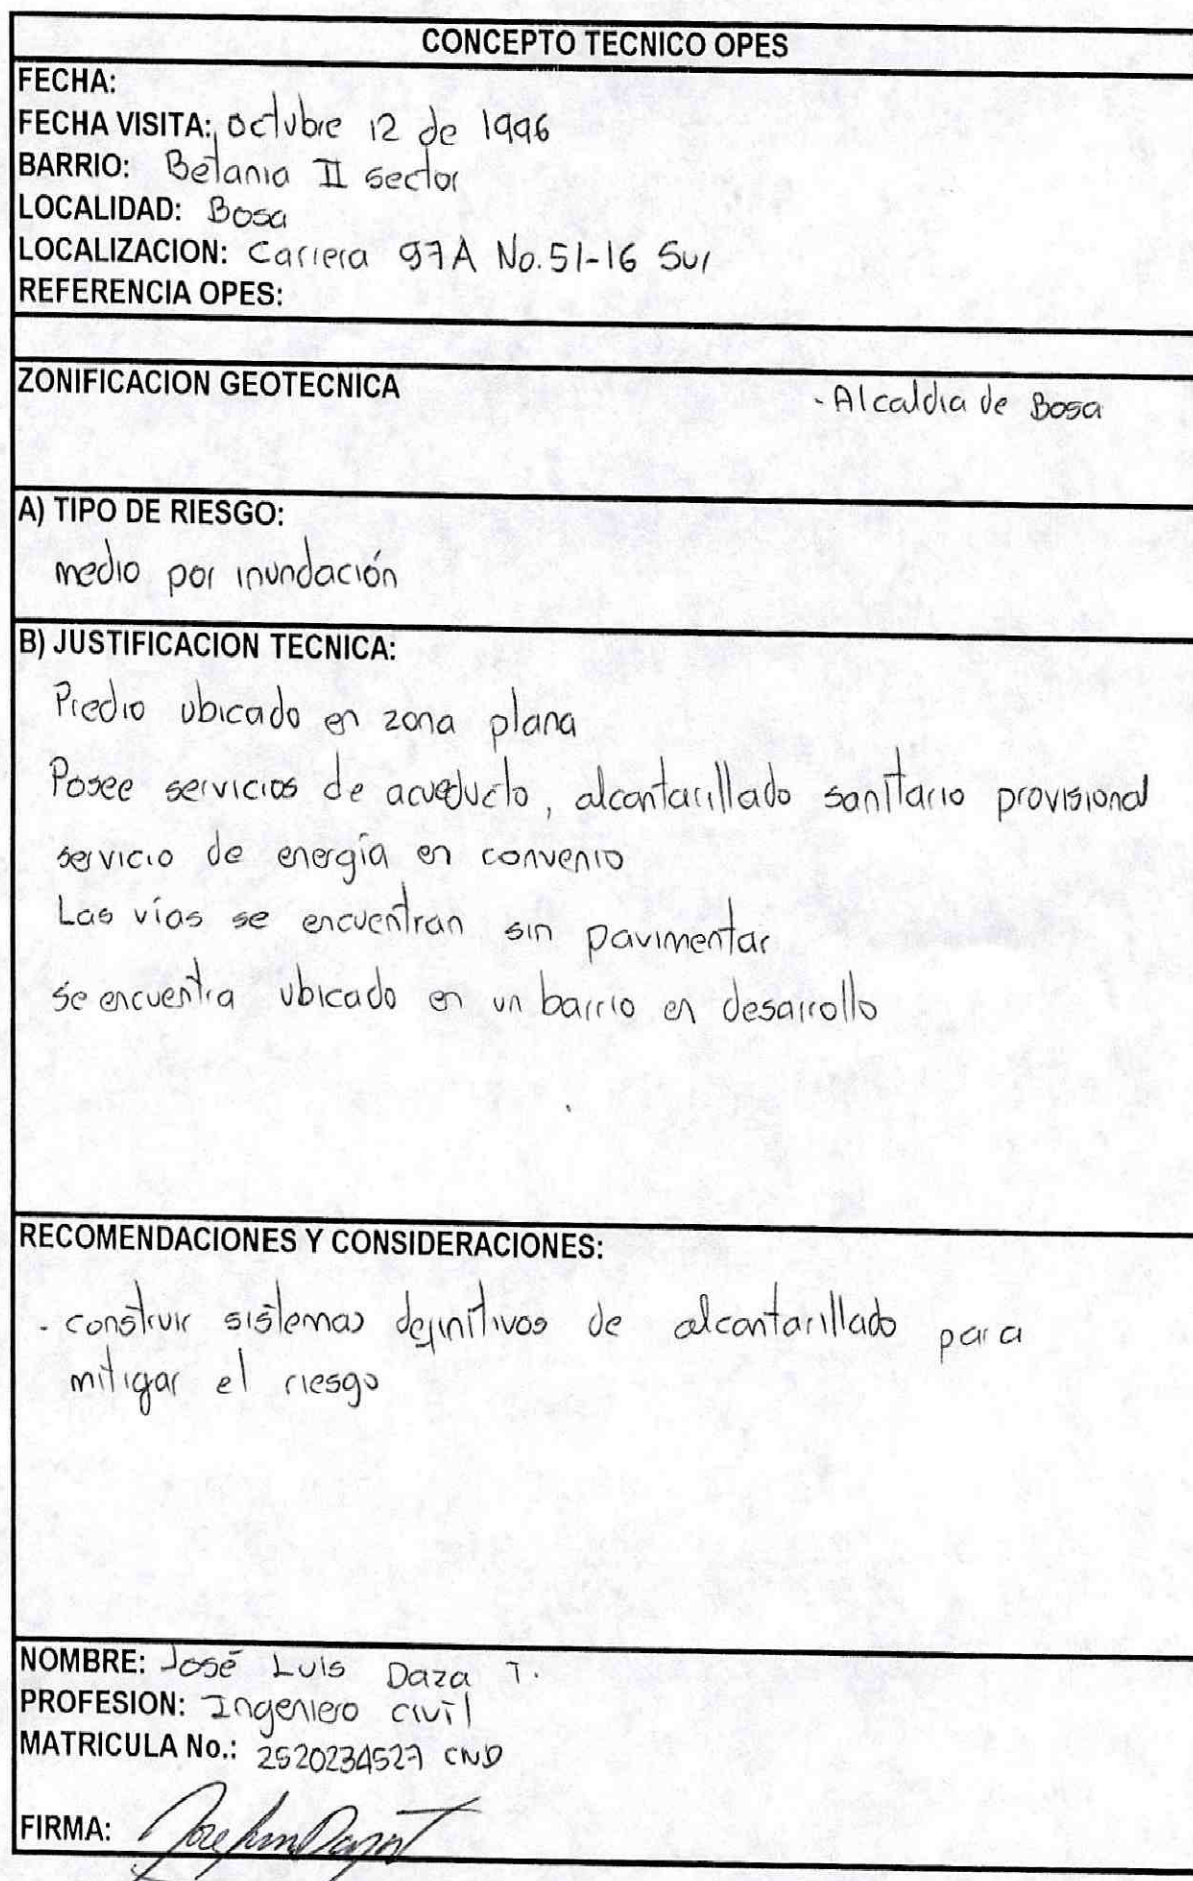 CONCEPTO TECNICO OPES
FECHA:
FECHA VISITA: Octubre 12 de 1996
BARRIO: Betania II sector
LOCALIDAD: Bosa
LOCALIZACION: Carrera 97A No. 51-16 Sur
REFERENCIA OPES:
ZONIFICACION GEOTECNICA
- Alcaldia de Bosa
A) TIPO DE RIESGO:
medio por inundación
B) JUSTIFICACION TECNICA:
Predio ubicado en zona plana
Posee servicios de acueducto, alcantarillado sanitario provisional
servicio de energía en convenio
Las vías se encuentran sin pavimentar
se encuentra ubicado en un barrio en desarrollo
RECOMENDACIONES Y CONSIDERACIONES:
- construir sistemas definitivos de alcantarillado para
mitigar el riesgo
NOMBRE: José Luis Daza T.
PROFESION: Ingeniero civil
MATRICULA No.: 2520234527 CND
FIRMA: